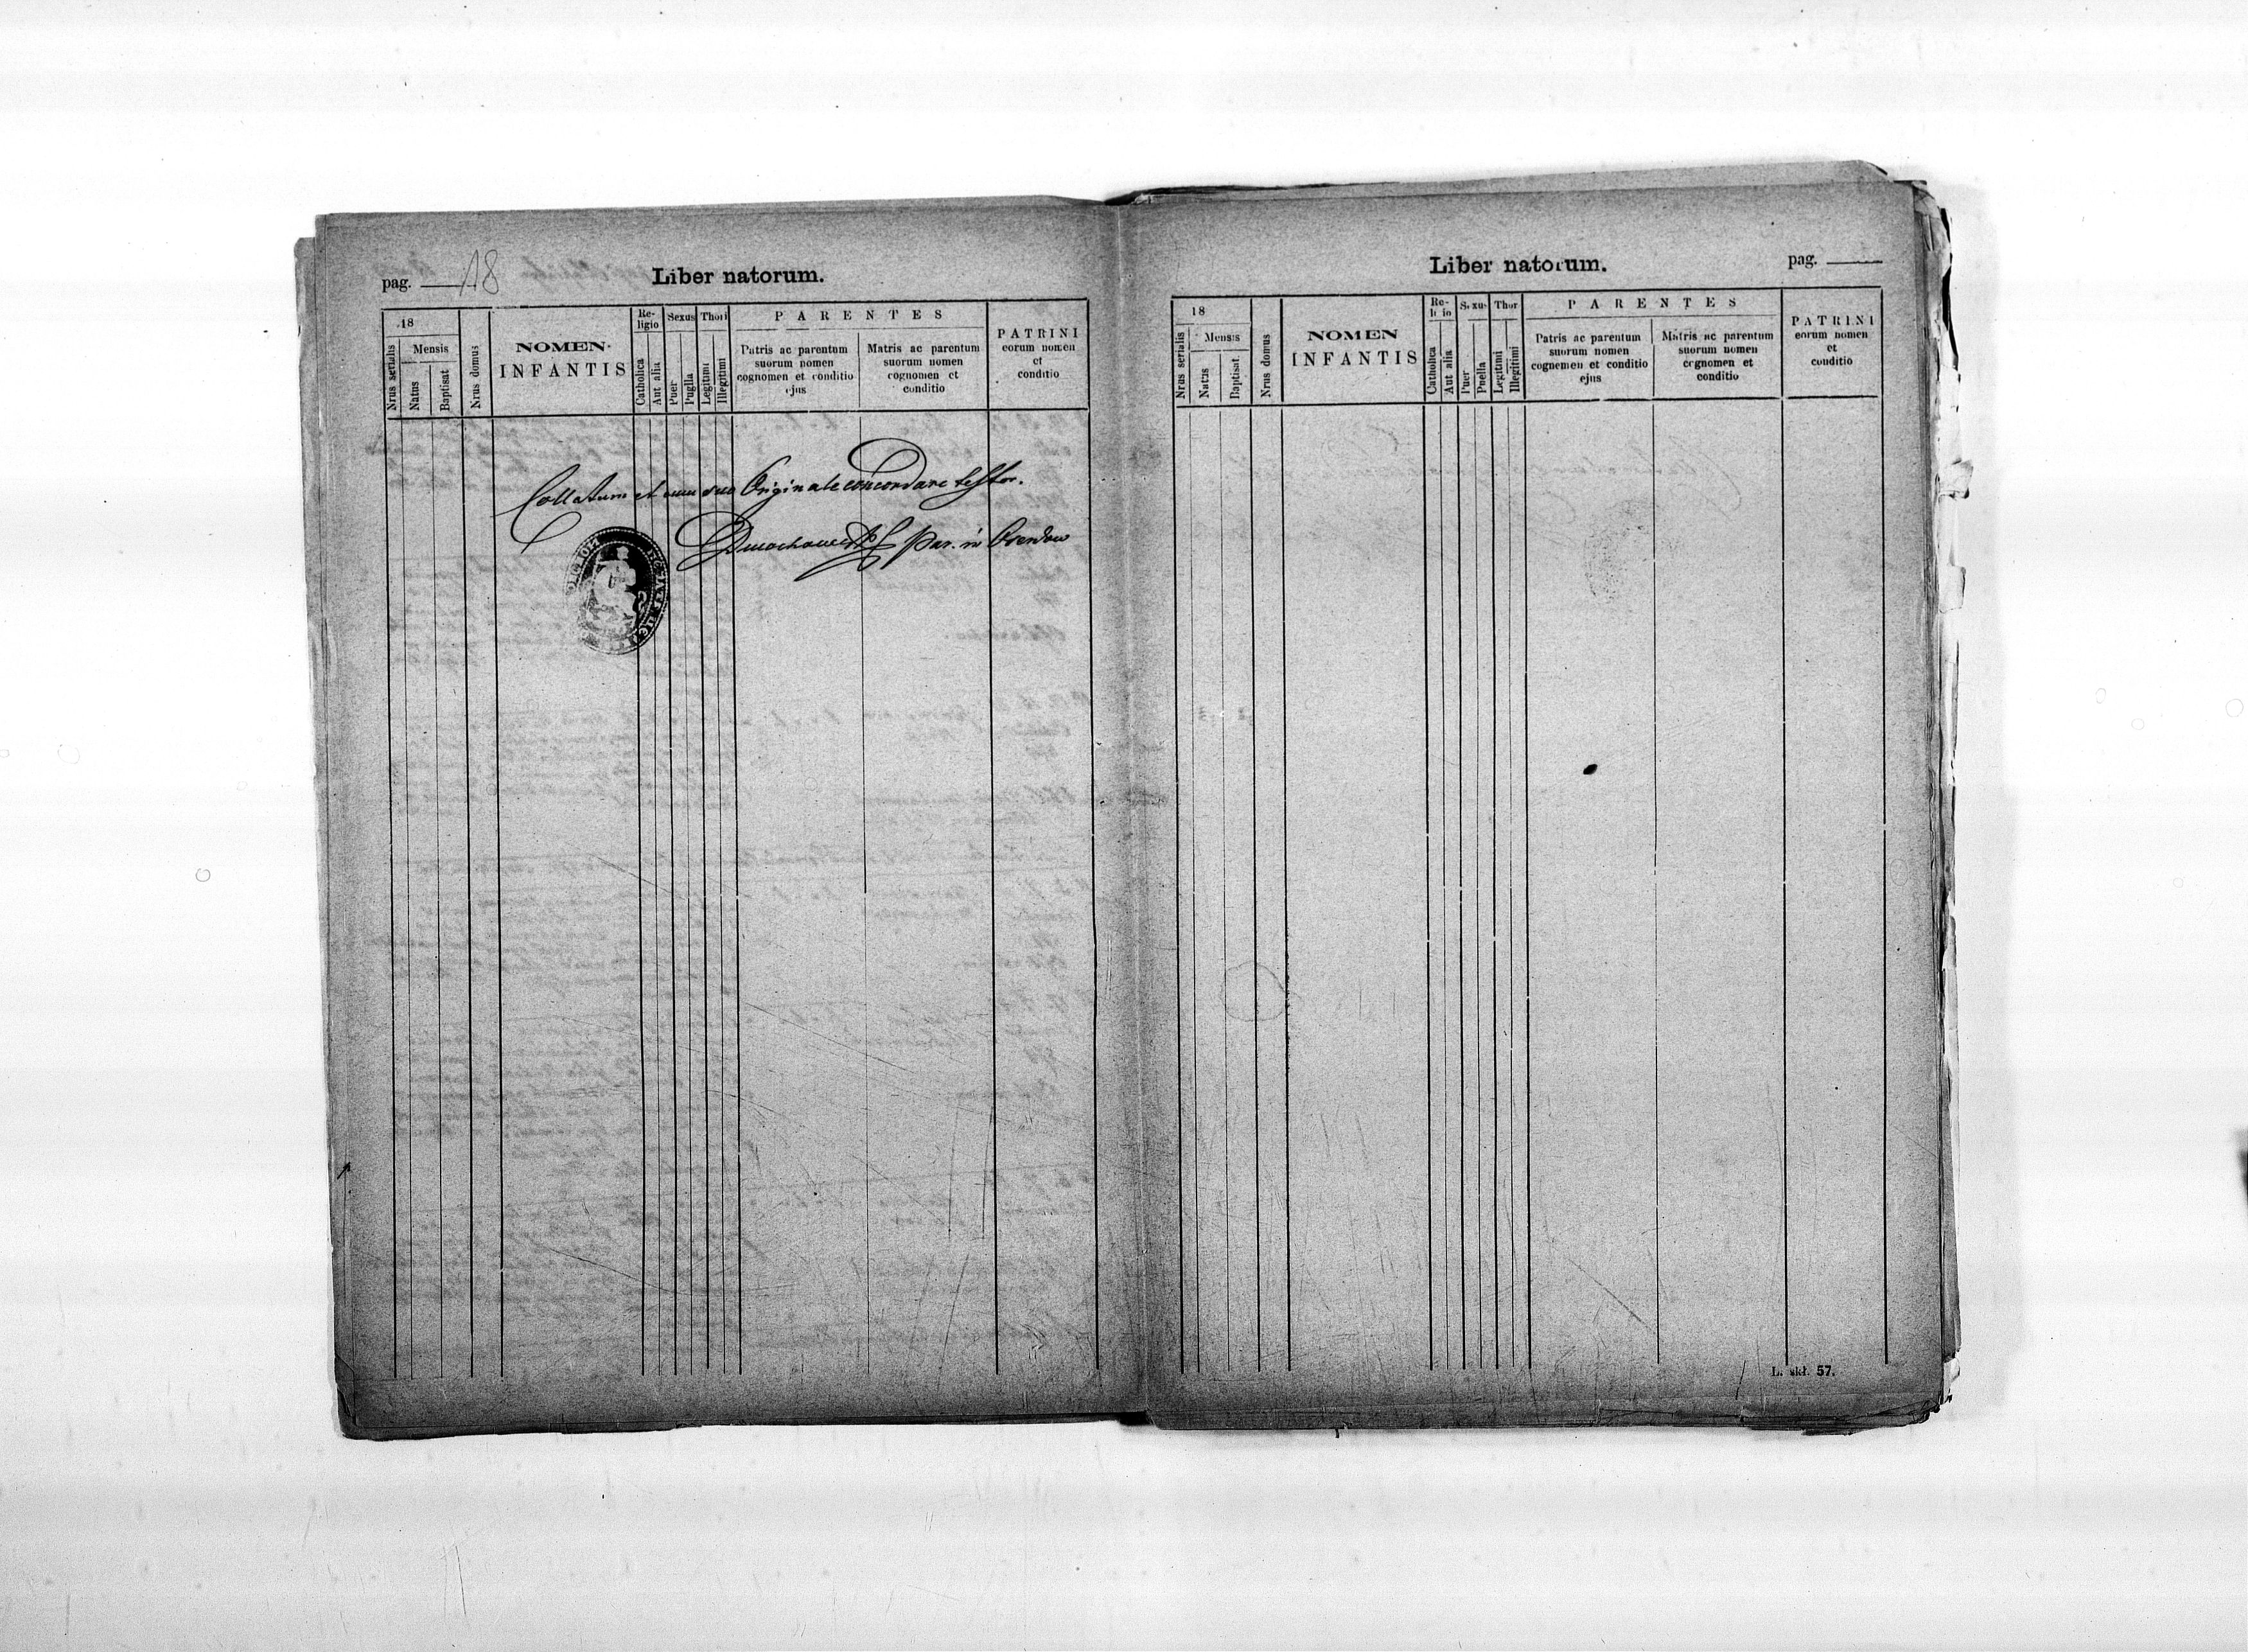 pag. 18
Liber natorum.
18
Nrus serialis
Mensis
Natus
Baptisat
Nrus domus
NOMEN
INFANTIS
Re-
ligio
Catholica
Aut alia
Sexus
Puer
Puella
Thori
Legitimi
Illegitimi
PARENTES
Patris ac parentum
suorum nomen
cognomen et conditio
ejus
Matris ac parentum
suorum nomen
cognomen et
conditio
PATRINI
eorum nomen
et
conditio
Collatum et cum suo Originale concordare testor.
Par. in
Liber natorum.
pag.
18
Nrus serialis
Mensis
Natus
Baptisat
Nrus domus
NOMEN
INFANTIS
Re-
Catholica
Aut alia
Sexus
Puer
Puella
Thor
Legitimi
Illegitimi
PARENTES
Patris ac parentum
suorum nomen
cognomen et conditio
ejus
Matris ac parentum
suorum nomen
cognomen et
conditio
PATRINI
eorum nomen
et
conditio
L. skł. 57.